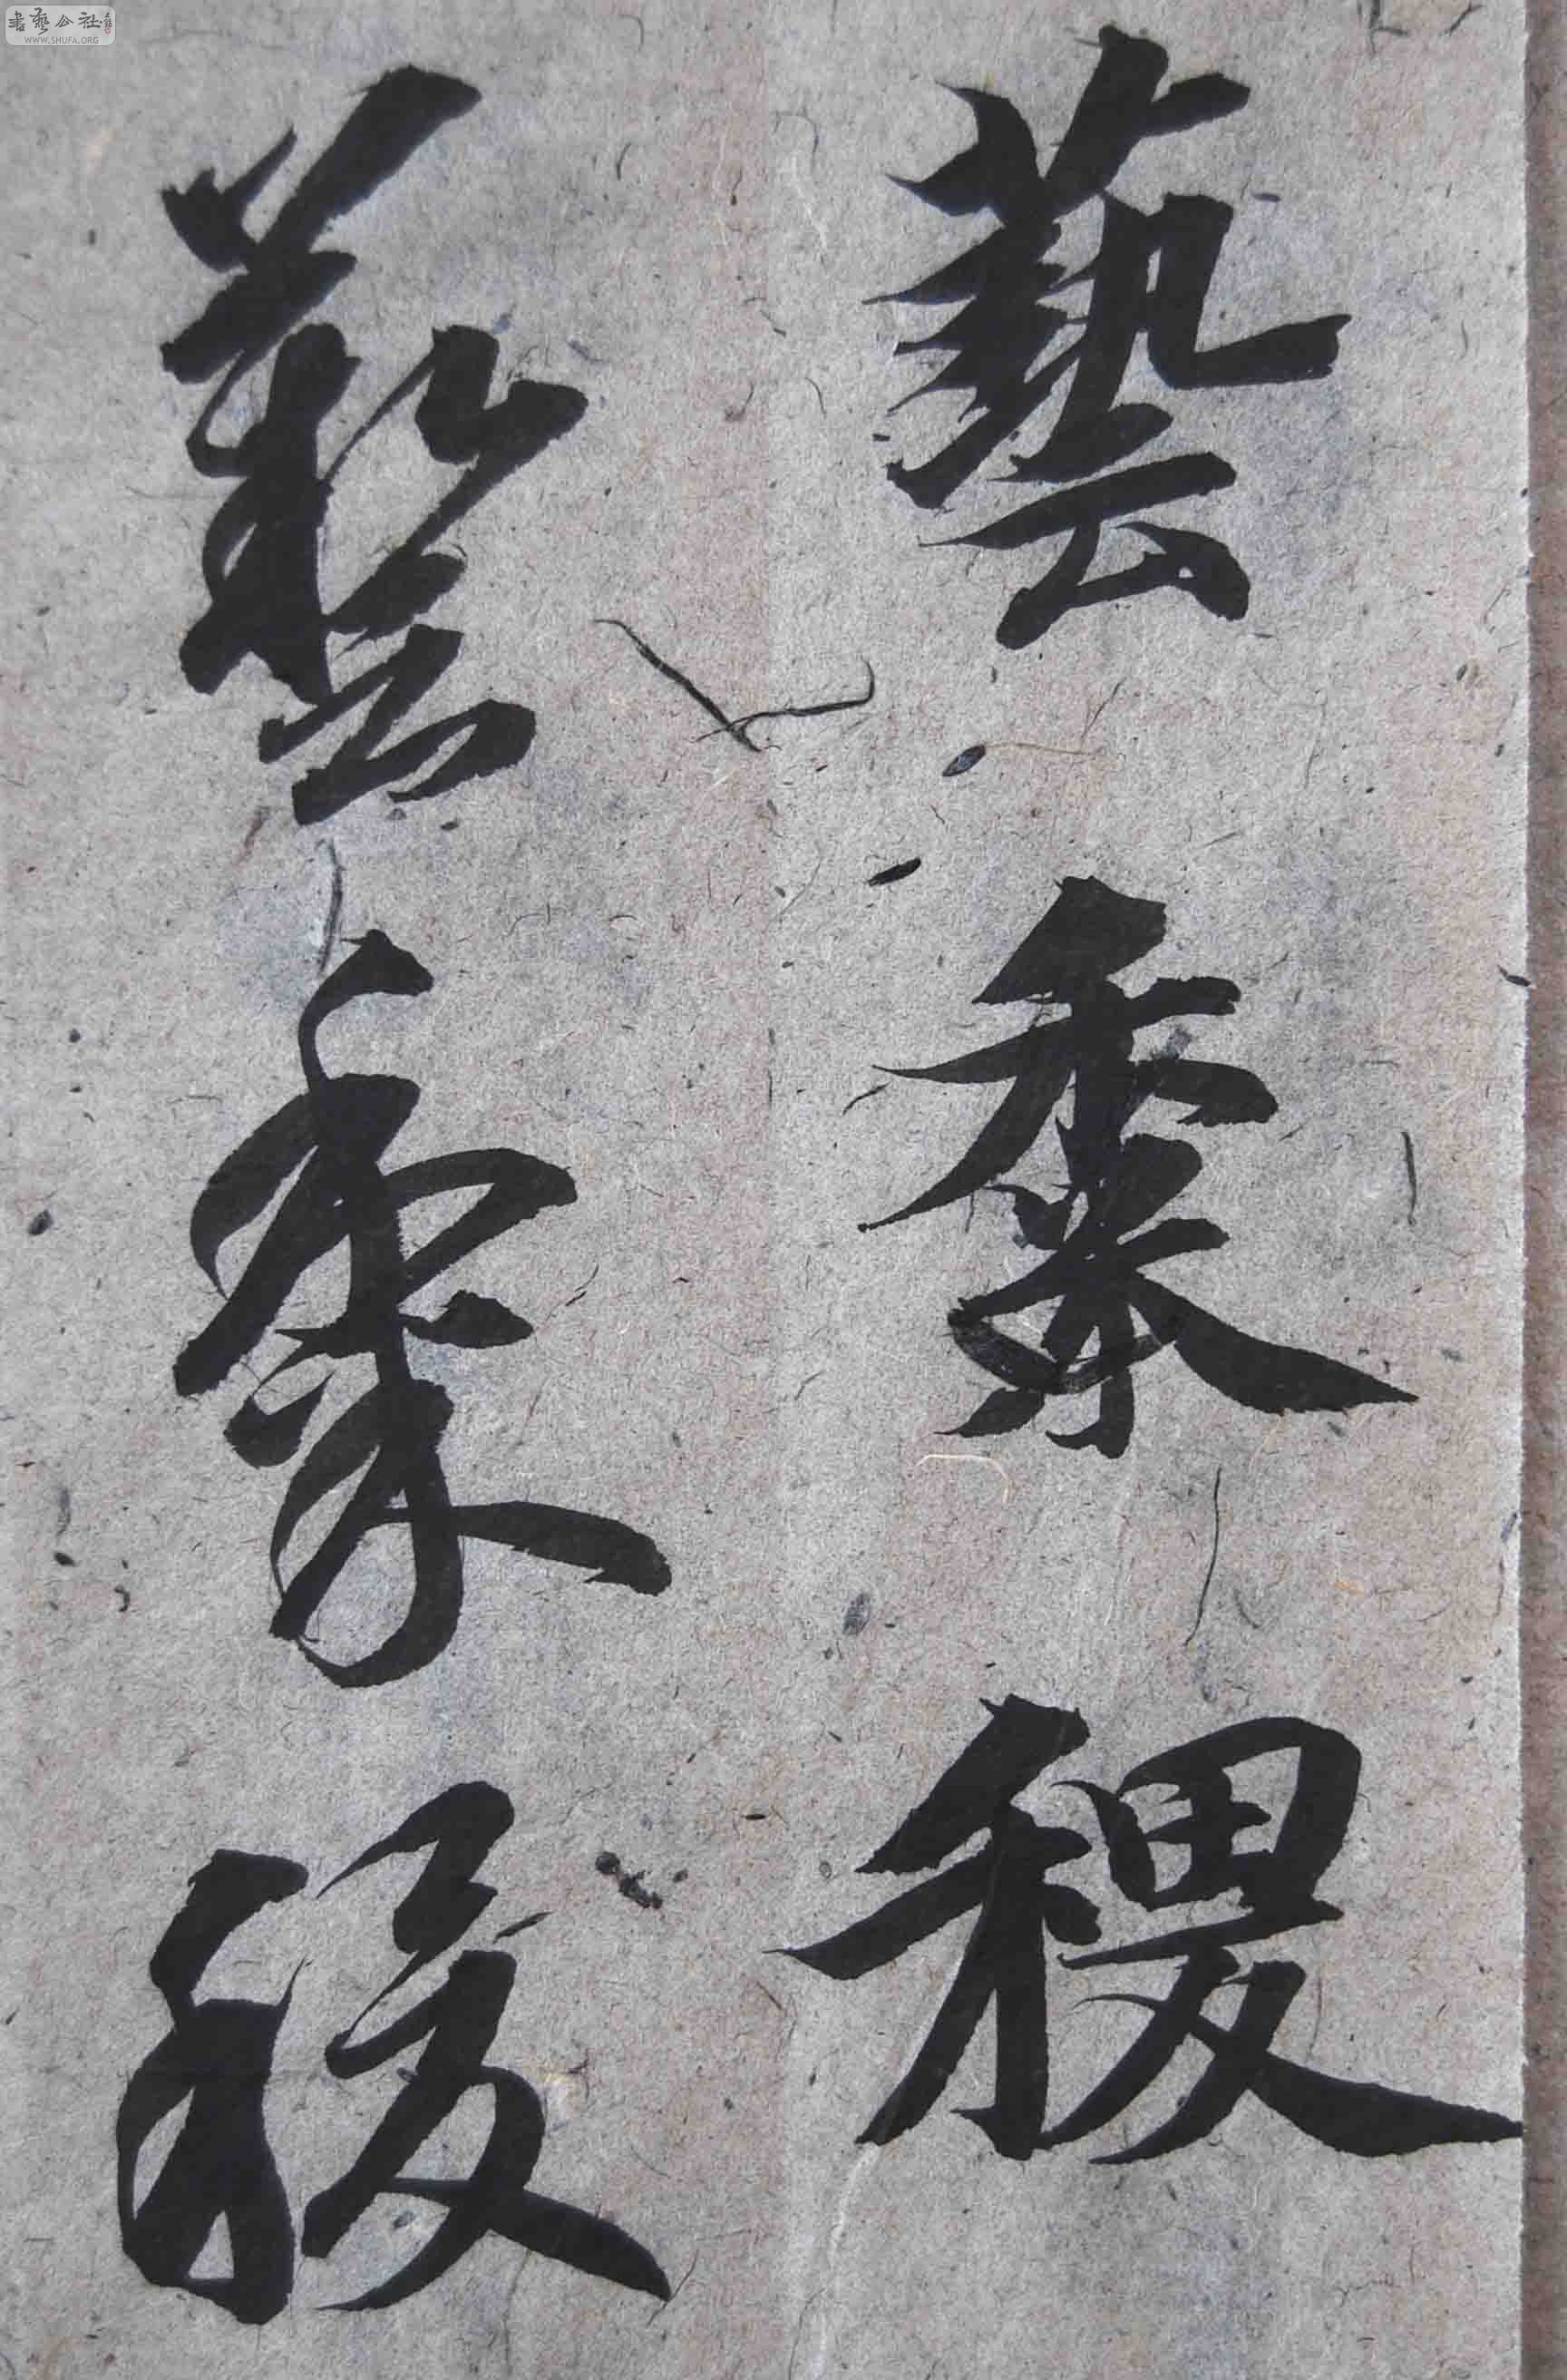 藝黍稷
藝黍稷
書藝公社
WWW.SHUFA.ORG